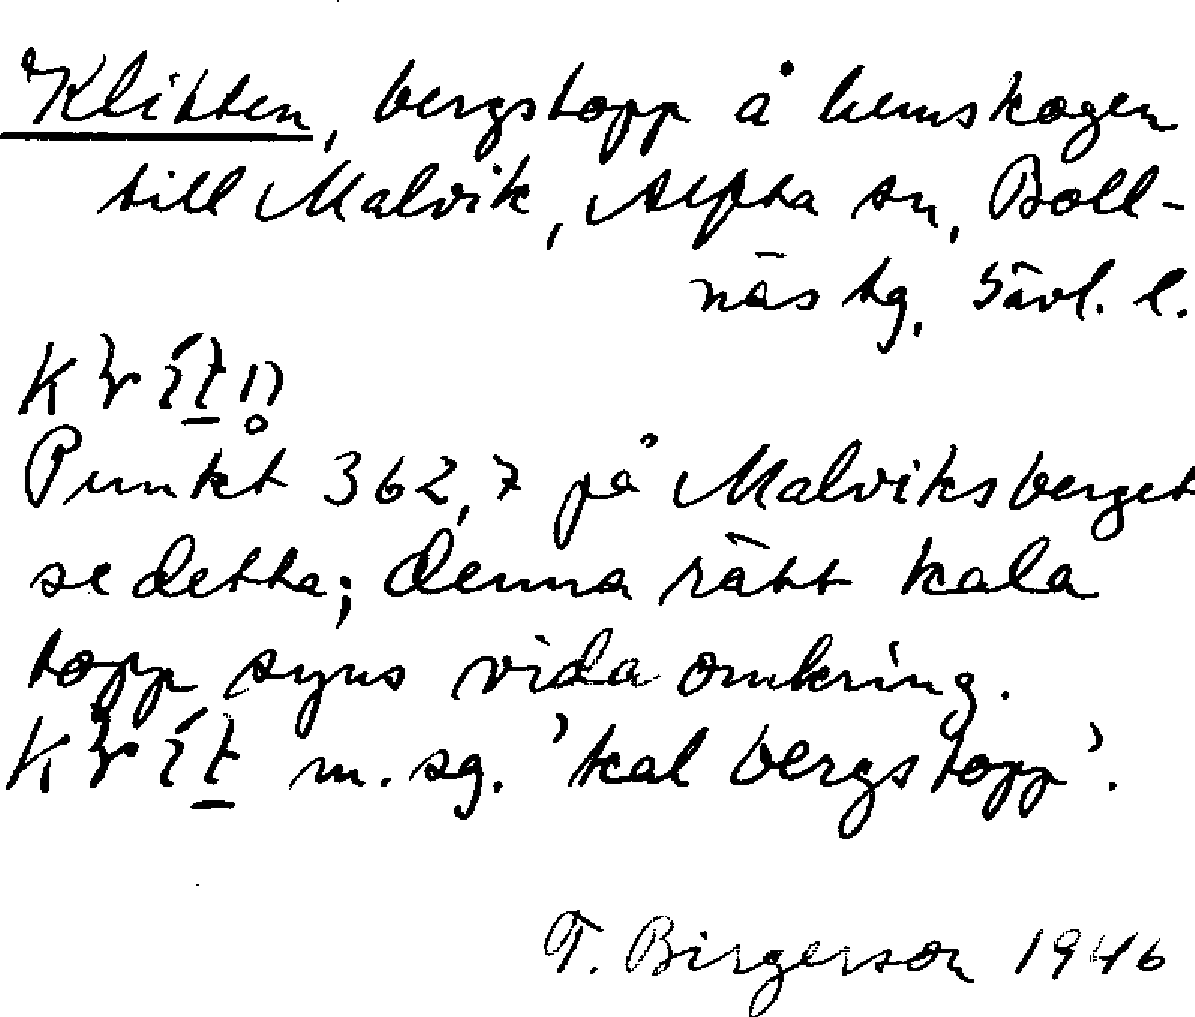 Klitten, bergstopp å hemskogen
till Malvik, Alfta sn, Boll-
näs tg, Gävl. l.
Punkt 362,7 på Malviksberget
se detta; denna rätt kala
topp syns vida omkring.
m. sg. 'kal bergstopp'.
T. Birgerson 1946